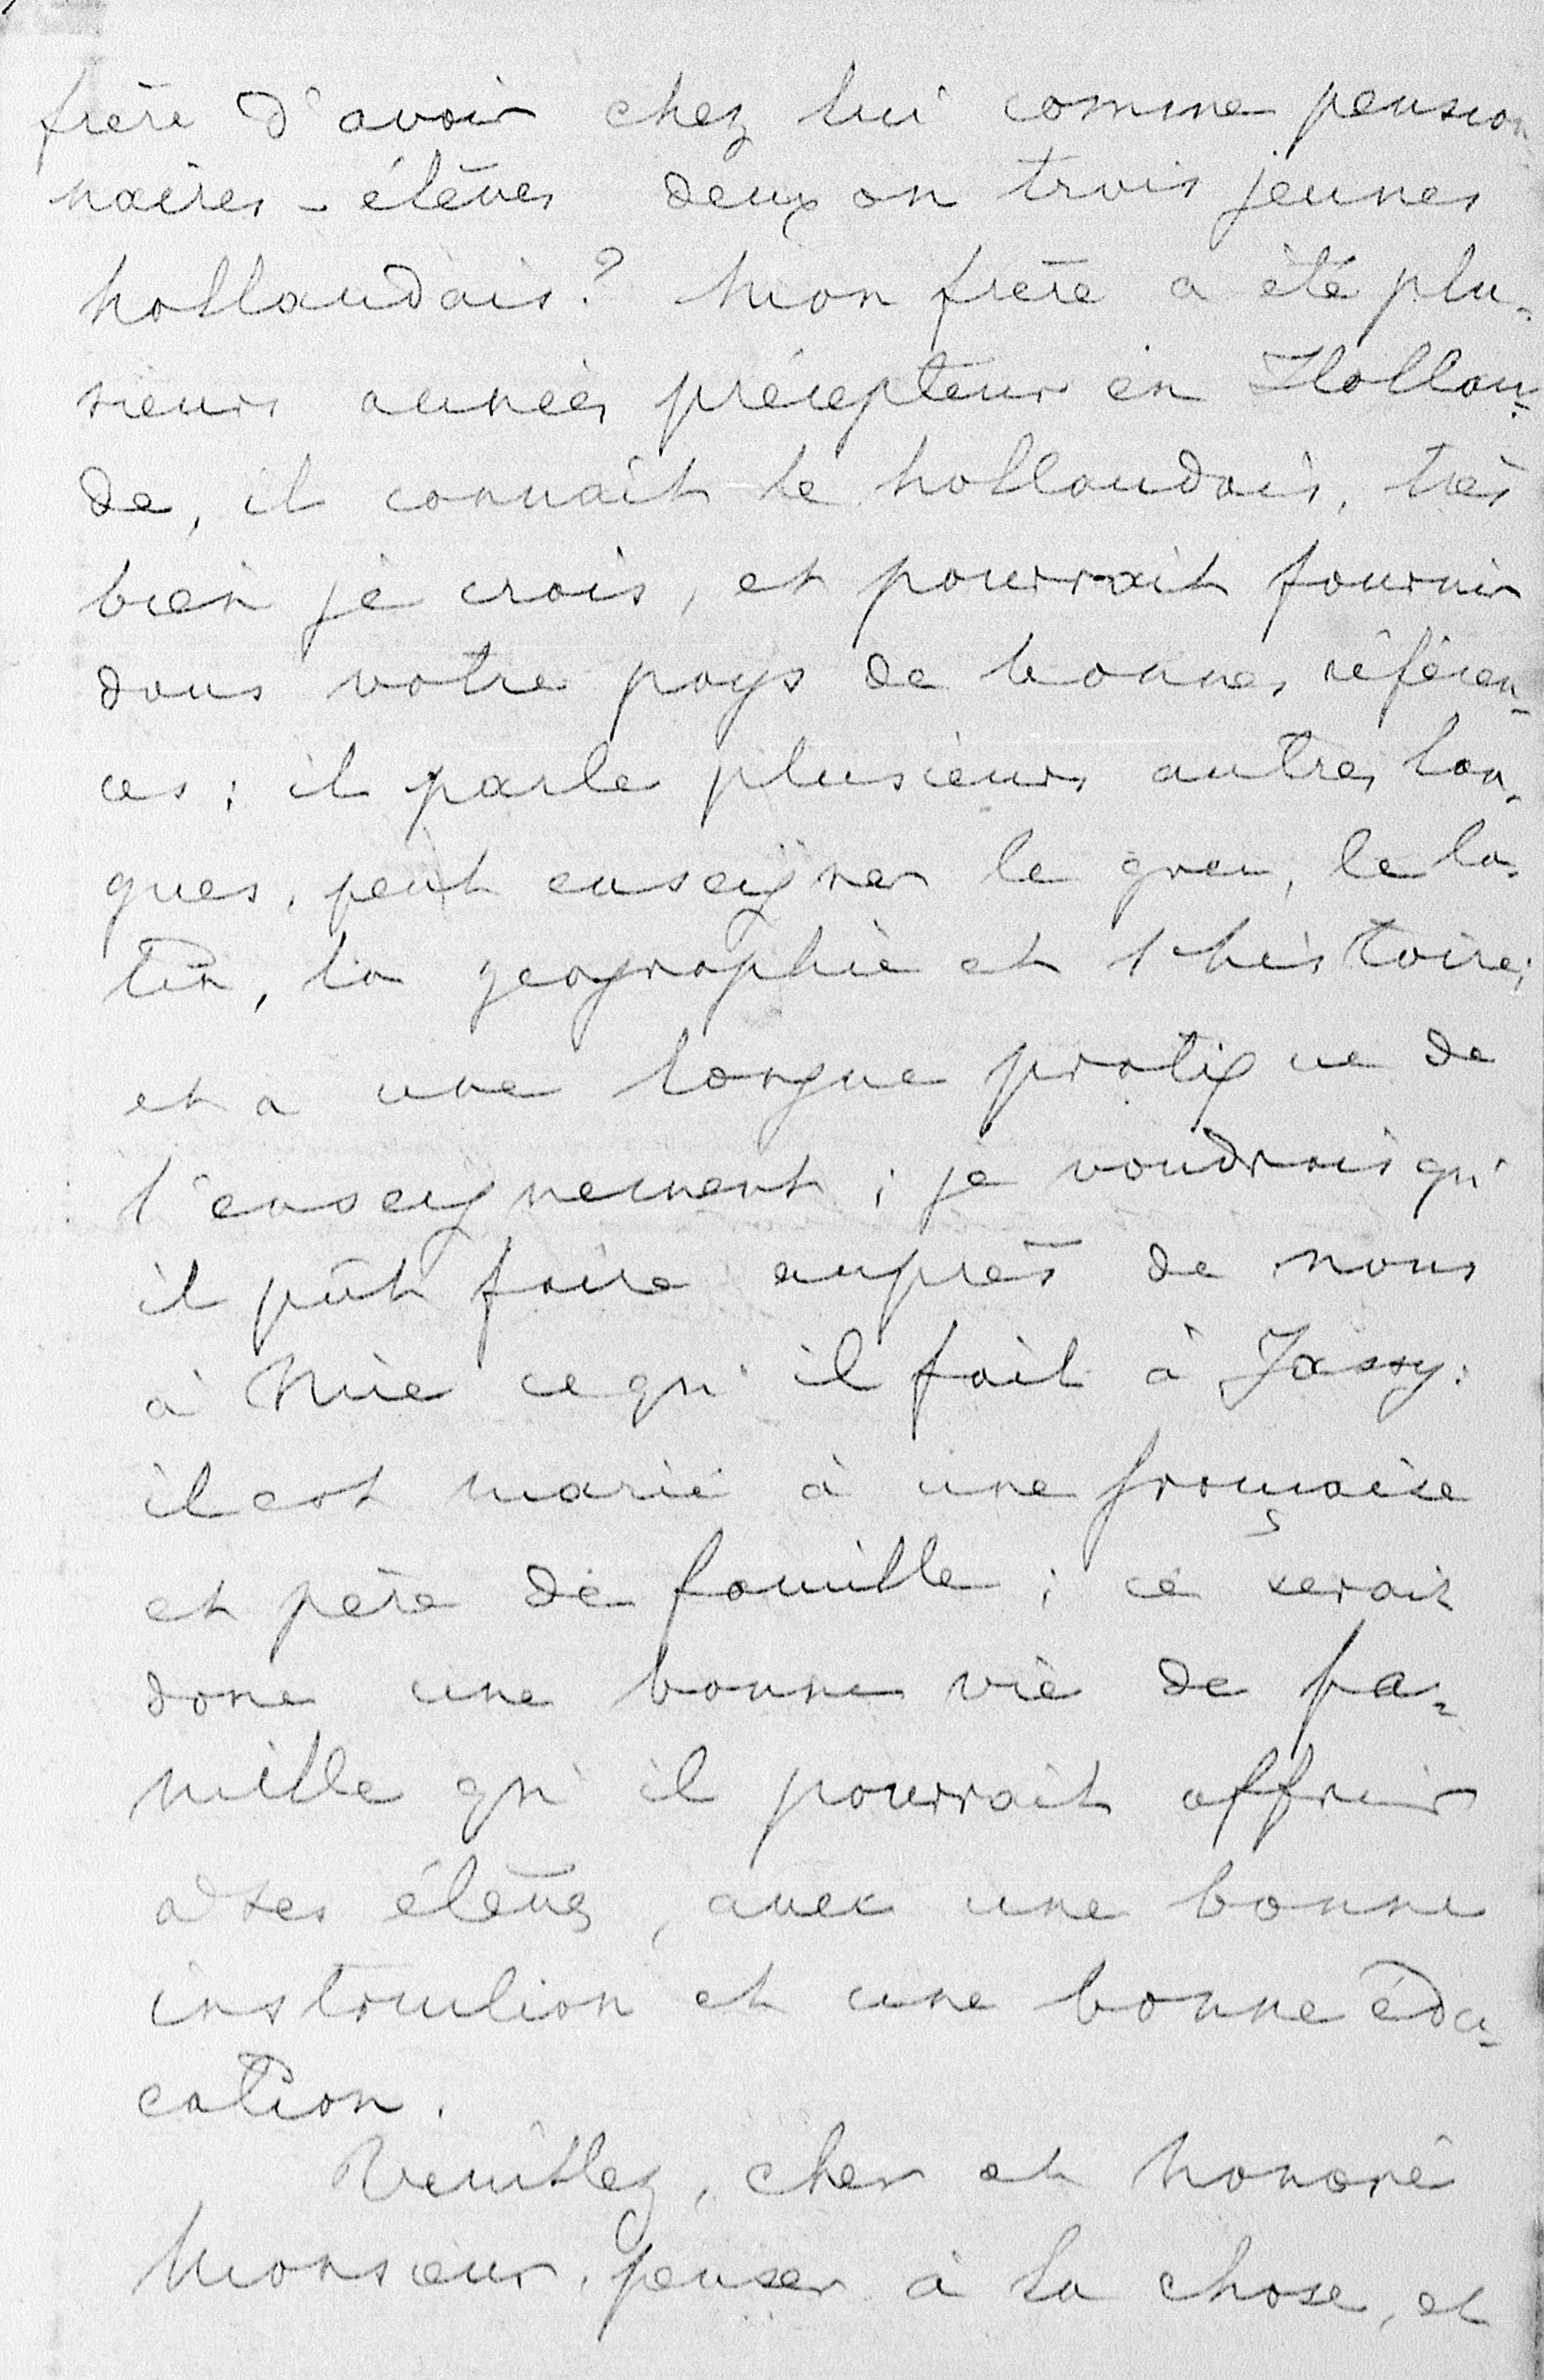 frère d'avoir chez lui comme pension
naires - élèves deux ou trois jeunes
hollandais? Mon frère a été plu-
sieurs années précepteur en Hollan-
de, il connaît le hollandais, très
bien je crois, et pourrait fournir
dans votre pays de bonnes référen-
ces; il parle plusieurs autres lan-
gues, peut enseigner le grec, le la-
tin, la geographie et l'histoire;
et a une longue pratique de
l'enseignement; je voudrais qu'
il pût faire auprès de nous
à Nice ce qu'il fait à Jassy:
il est marié à une française
et père de famille; ce serait
donc une bonne vie de fa-
mille qu'il pourrait offrir
à ses élèves, avec une bonne
instruction et une bonne édu-
cation.
Veuillez, cher et honoré
Monsieur, penser à la chose, et